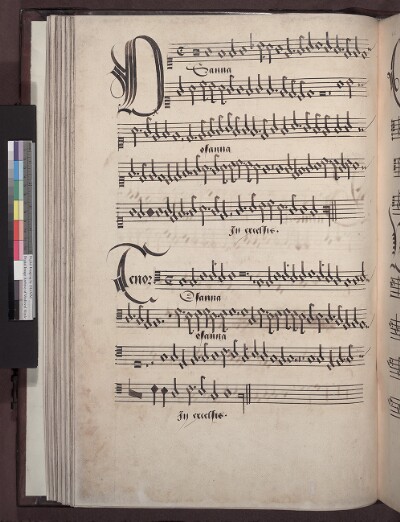 Osanna
osanna
In excelsis.
Tenor
Osanna
osanna
In excelsis.